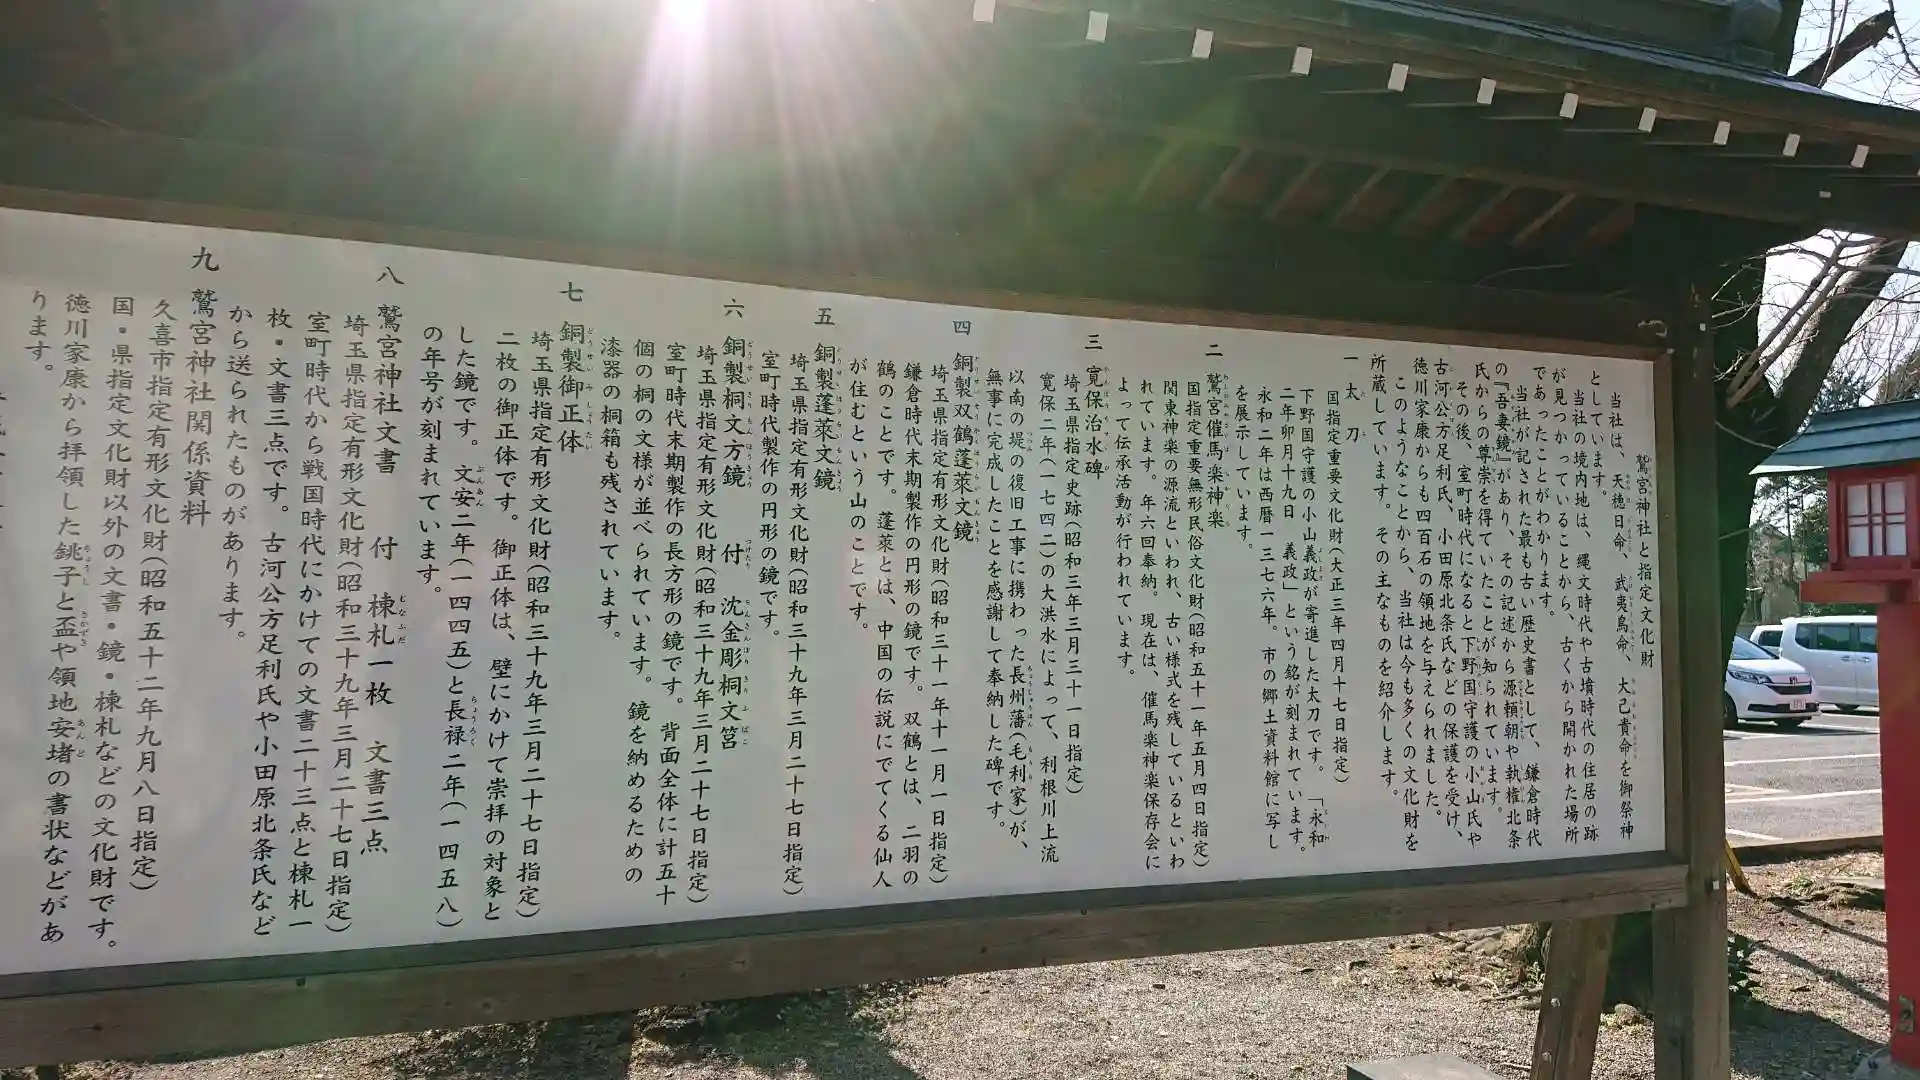 鷲宮神社と指定文化財
当社は、天穂日命、武夷鳥命、大己貴命を御祭神
としています。
当社の境内地は、縄文時代や古墳時代の住居の跡
が見つかっていることから、古くから開かれた場所
であったことがわかります。
当社が記された最も古い歴史書として、鎌倉時代
の『吾妻鏡』があり、その記述から源頼朝や執権北条
氏からの尊崇を得ていたことが知られています。
その後、室町時代になると下野国守護の小山氏や
古河公方足利氏、小田原北条氏などの保護を受け、
徳川家康からも四百石の領地を与えられました。
このようなことから、当社は今も多くの文化財を
所蔵しています。その主なものを紹介します。
一 太刀
国指定重要文化財(大正三年四月十七日指定)
下野国守護の小山義政が寄進した太刀です。「永和
二年卯月十九日 義政」という銘が刻まれています。
永和二年は西暦一三七六年。市の郷土資料館に写し
を展示しています。
二 鷲宮催馬楽神楽
国指定重要無形民俗文化財(昭和五十一年五月四日指定)
関東神楽の源流といわれ、古い様式を残しているといわ
れています。年六回奉納。現在は、催馬楽神楽保存会に
よって伝承活動が行われています。
三 寛保治水碑
埼玉県指定史跡(昭和三年三月三十一日指定)
寛保二年(一七四二)の大洪水によって、利根川上流
以南の堤の復旧工事に携わった長州藩(毛利家)が、
無事に完成したことを感謝して奉納した碑です。
四 銅製双鶴蓬萊文鏡
埼玉県指定有形文化財(昭和三十一年十一月一日指定)
鎌倉時代末期製作の円形の鏡です。双鶴とは、二羽の
鶴のことです。蓬萊とは、中国の伝説にでてくる仙人
が住むという山のことです。
五 銅製蓬萊文鏡
埼玉県指定有形文化財(昭和三十九年三月二十七日指定)
室町時代製作の円形の鏡です。
六 銅製桐文方鏡 付 沈金彫桐文筥
埼玉県指定有形文化財(昭和三十九年三月二十七日指定)
室町時代末期製作の長方形の鏡です。背面全体に計五十
個の桐の文様が並べられています。鏡を納めるための
漆器の桐箱も残されています。
七 銅製御正体
埼玉県指定有形文化財(昭和三十九年三月二十七日指定)
二枚の御正体です。御正体は、壁にかけて崇拝の対象と
した鏡です。文安二年(一四四五)と長禄二年(一四五八)
の年号が刻まれています。
八 鷲宮神社文書 付 棟札一枚 文書三点
埼玉県指定有形文化財(昭和三十九年三月二十七日指定)
室町時代から戦国時代にかけての文書二十三点と棟札一
枚・文書三点です。古河公方足利氏や小田原北条氏など
から送られたものがあります。
九 鷲宮神社関係資料
久喜市指定有形文化財(昭和五十二年九月八日指定)
国・県指定文化財以外の文書・鏡・棟札などの文化財です。
徳川家康から拝領した銚子と盃や領地安堵の書状などがあ
ります。